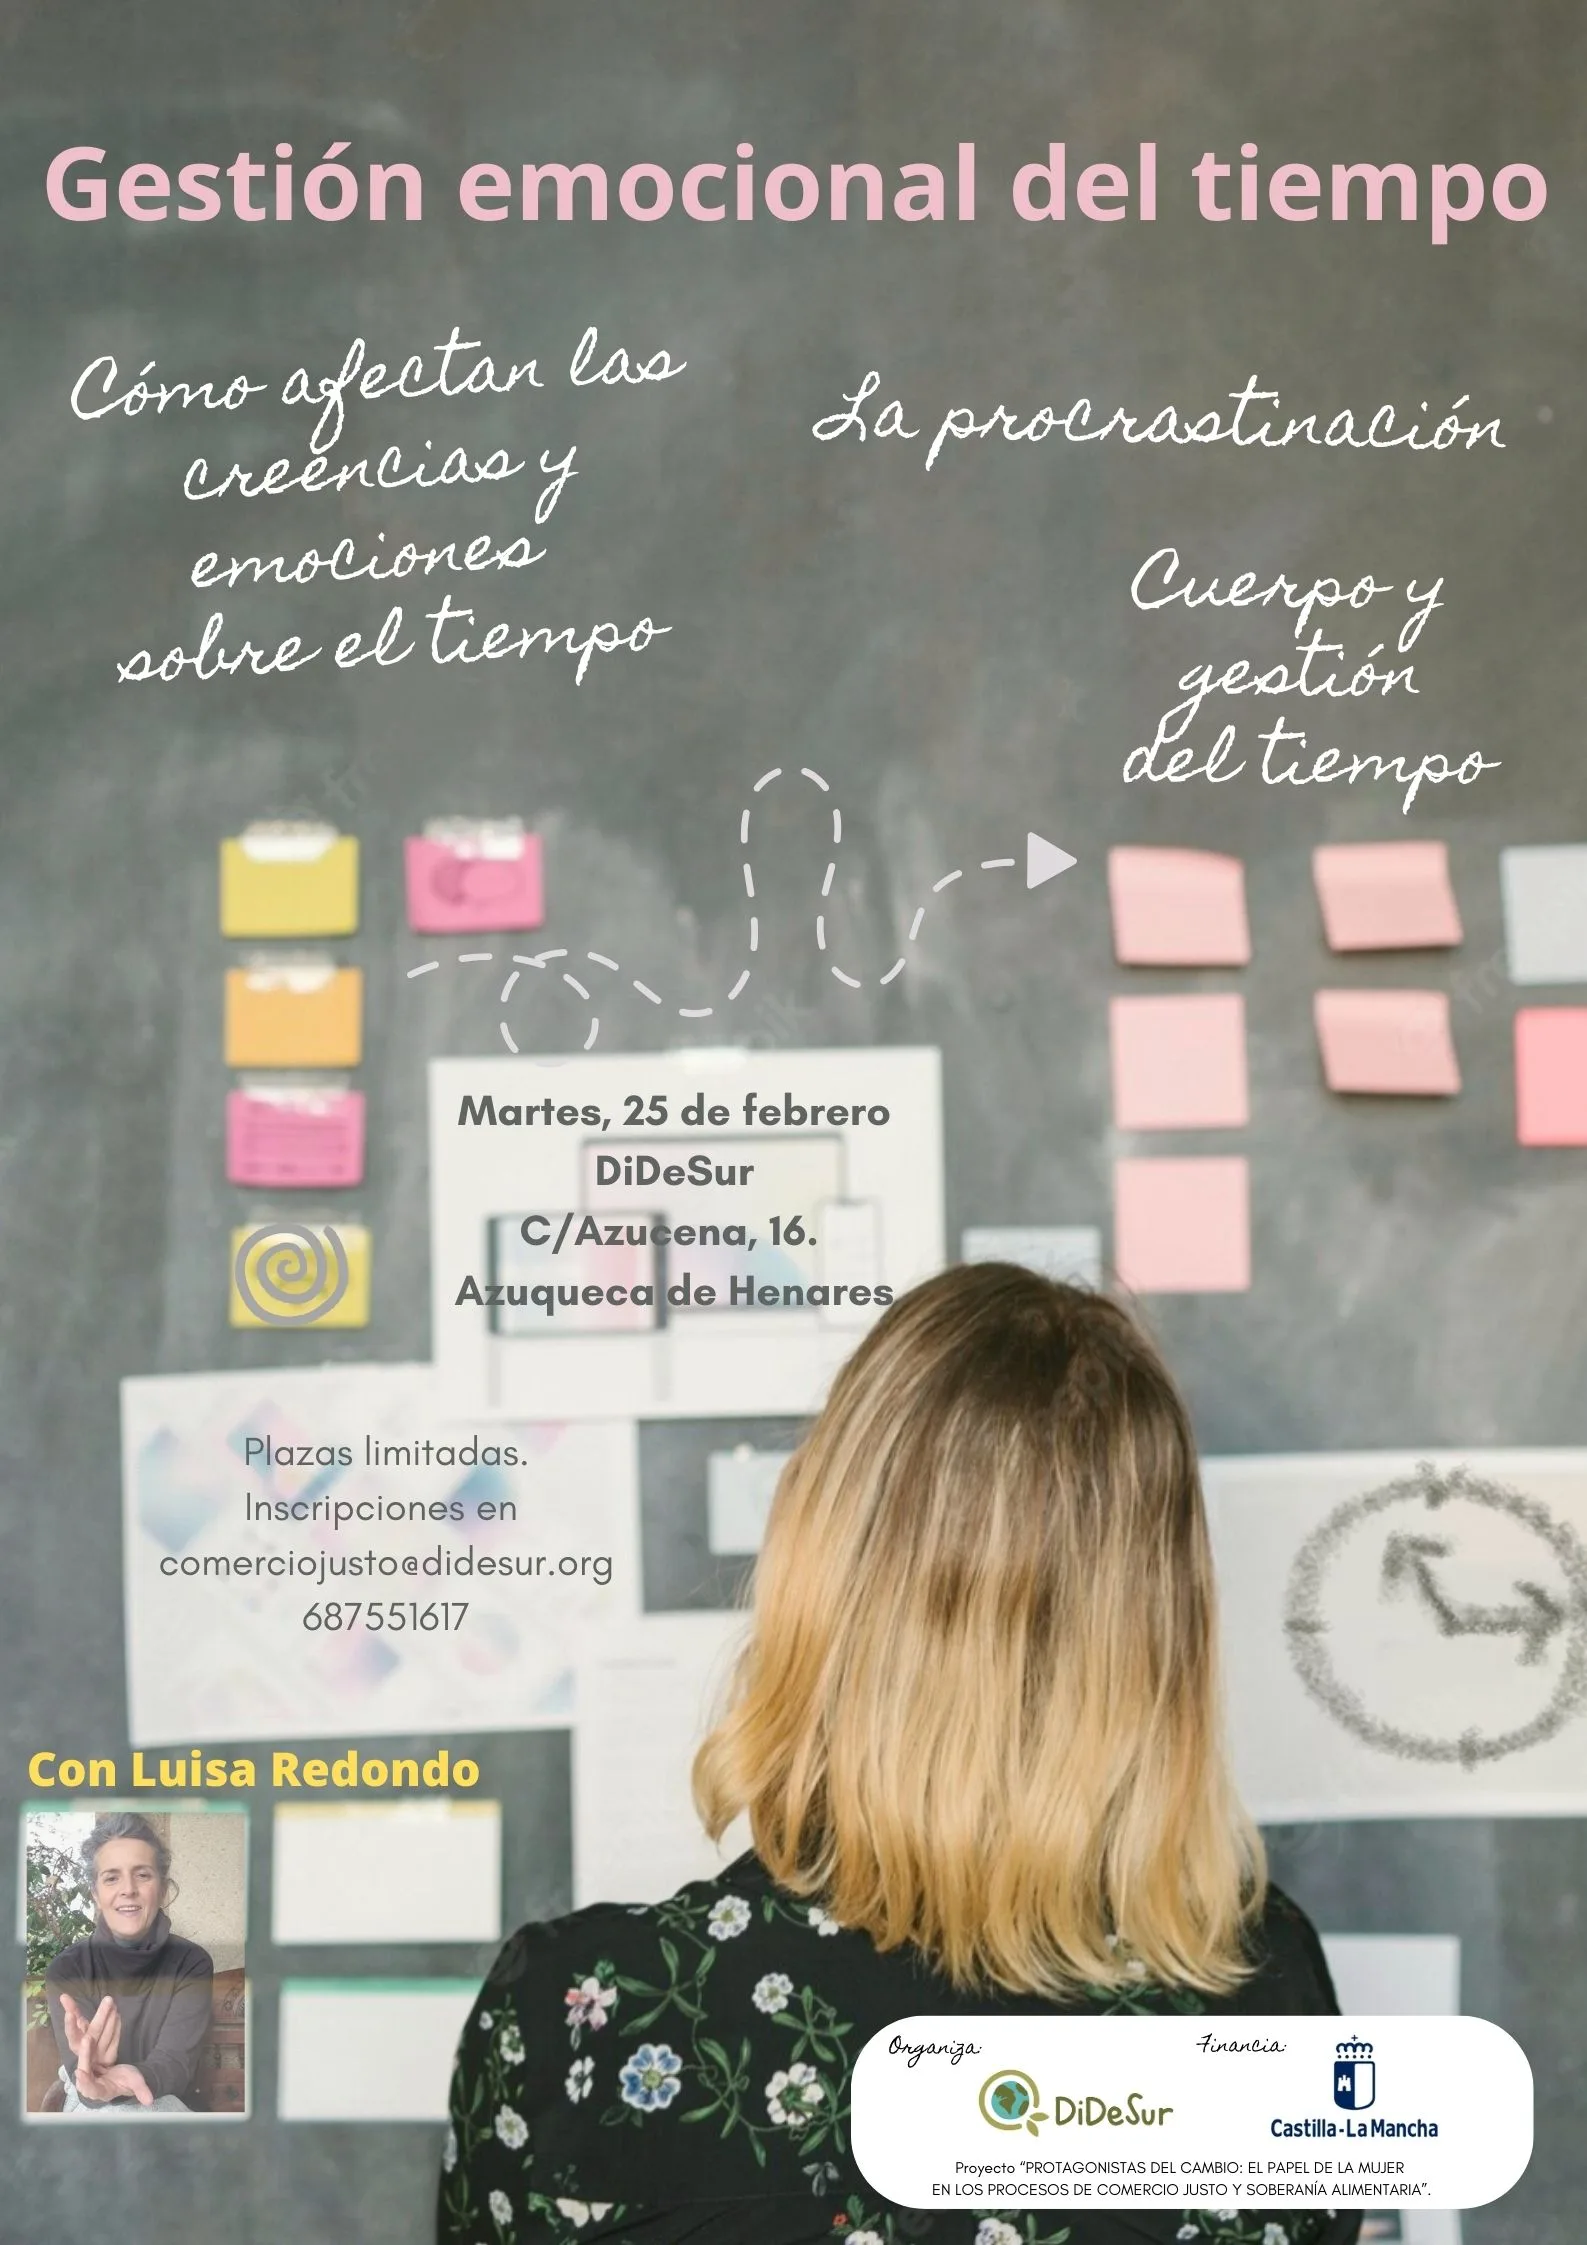 Gestión emocional del tiempo
Cómo afectan las
creencias y
emociones
sobre el tiempo
La procrastinación
Cuerpo y
gestión
del tiempo
Martes, 25 de febrero
DiDeSur
C/Azucena, 16.
Azuqueca de Henares
Plazas limitadas.
Inscripciones en
comerciojusto@didesur.org
687551617
Con Luisa Redondo
Organiza:
DiDeSur
Financia:
Castilla-La Mancha
Proyecto “PROTAGONISTAS DEL CAMBIO: EL PAPEL DE LA MUJER
EN LOS PROCESOS DE COMERCIO JUSTO Y SOBERANÍA ALIMENTARIA”.